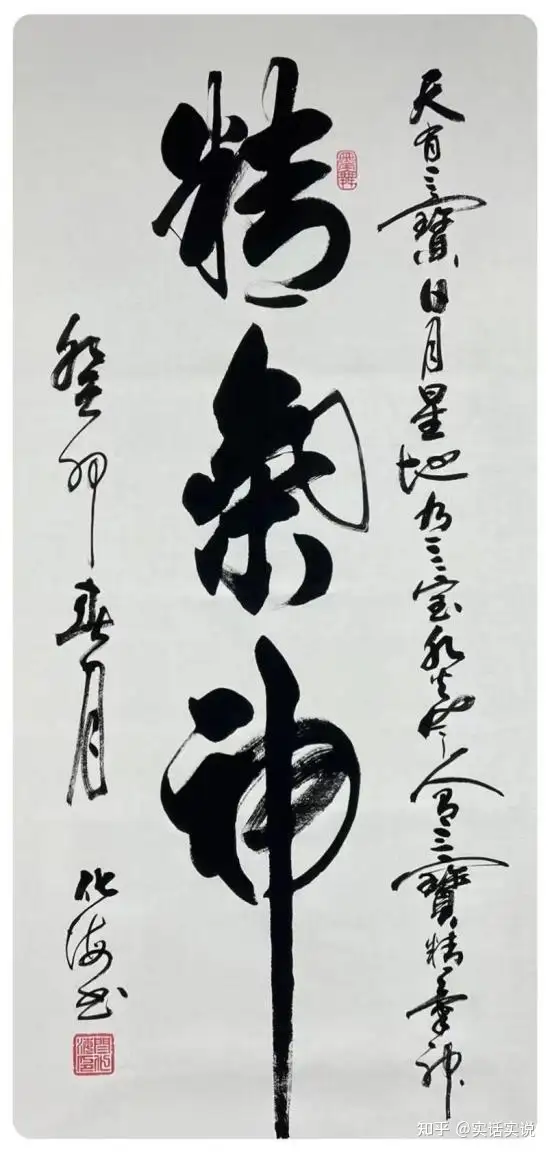 天有三寶日月星地有三宝水火風人有三寶精氣神
精氣神
癸卯春月
化海书
知乎 @实话实说